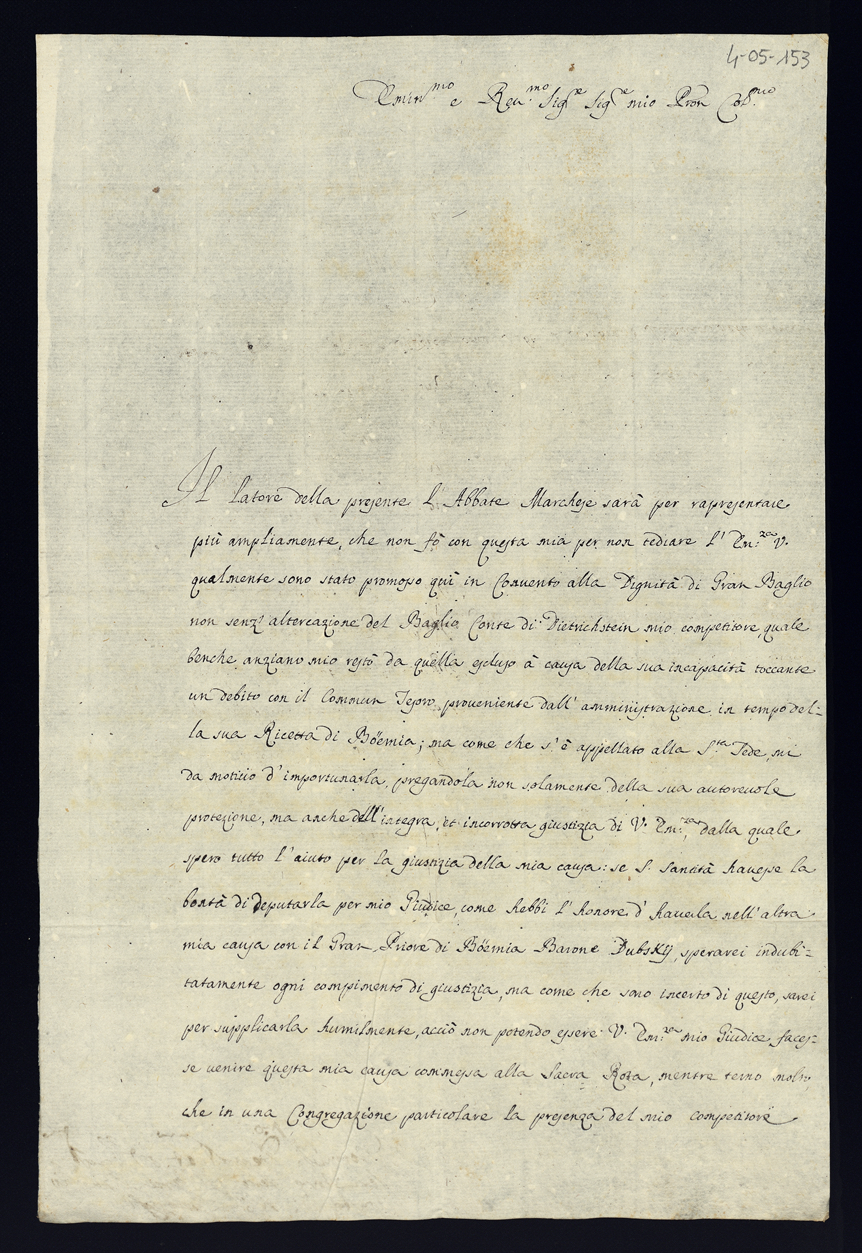 4-05-153
Emin.mo e Reu.mo Sig.e Sig.e mio Pron Col.mo
Il latore della presente l'Abbate Marchese sarà per rapresentare
più ampliamente, che non fò con questa mia per non tediare l'Em.za V.
qualmente sono stato promosso quì in Convento alla Dignità di Gran Baglio
non senz'altercazione del Baglio Conte di Dietrichstein mio competitore, quale
benche anziano mio restò da quella escluso à causa della sua incapacità toccante
un debito con il Commun Tesoro, proveniente dall'amministrazione in tempo del=
la sua Ricetta di Böemia; ma come che s'è appellato alla S.ta Sede, mi
da motivo d'importunarla, pregandola non solamente della sua autoreuole
protezione, ma anche dell'integra, et incorrotta giustizia di V. Em.za, dalla quale
spero tutto l'aiuto per la giustizia della mia causa: se S. Santità hauesse la
bontà di deputarla per mio Giudice, come hebbi l'honore d'hauerla nell'altra
mia causa con il Gran Priore di Böemia Barone Dubskÿ, sperarei indubi=
tatamente ogni compimento di giustizia, ma come che sono incerto di questo, sarei
per supplicarla humilmente, acciò non potendo essere V. Em.za mio Giudice, faces=
se venire questa mia causa commessa alla Sacra Rota, mentre temo molto,
che in una Congregazione particolare la presenza del mio competitore